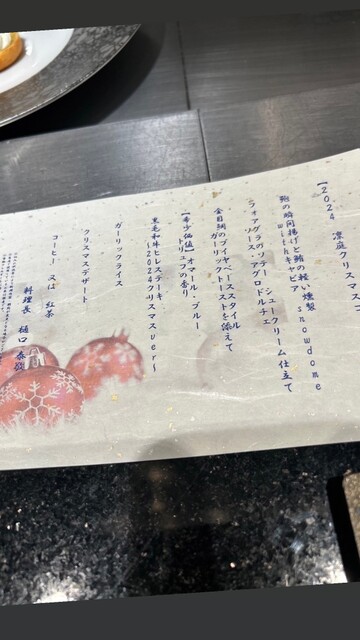 【2024 凛庭クリスマ
鮑の瞬間揚げと鮪の軽い燻製
withキャビア snowdome
フォアグラのソテー シュークリーム仕立て
ソース アグロドルチェ
金目鯛のブイヤベーススタイル
ガーリックトーストを添えて
【希少価値】オマール・ブルー
トリュフの香り
黒毛和牛ヒレステーキ
～2024クリスマスver～
ガーリックライス
クリスマスデザート
コーヒー 又は 紅茶
料理長 樋口